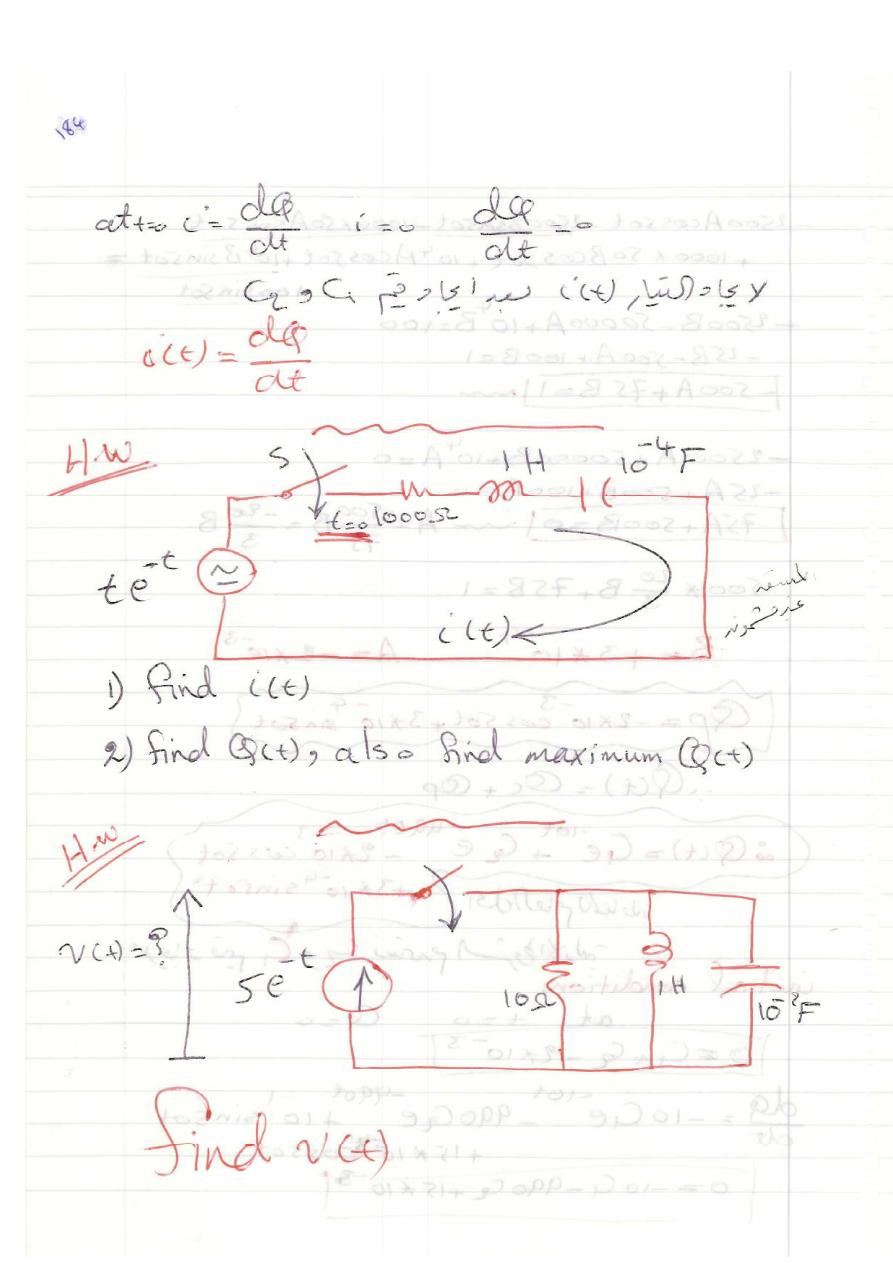 184
at t=0 i = dQ/dt i=0 dQ/dt = 0
لايجاد التيار i(t) بعد ايجاد قيم C₁ و C₂
i(t) = dQ/dt
H.W
S 1H 10⁻⁴F
t=0 1000Ω
te⁻ᵗ
i(t)
1) find i(t)
2) find Q(t), also find maximum Q(t)
H.W
v(t)=?
5e⁻ᵗ
10Ω 1H 10⁻²F
find v(t)